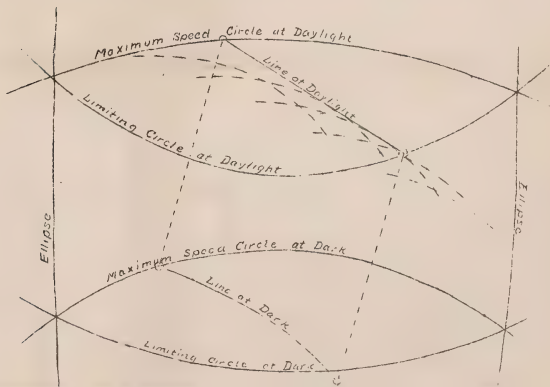 Maximum Speed Circle at Daylight
Line at Daylight
Limiting Circle at Daylight
Ellipse
Ellipse
Maximum Speed Circle at Dark
Line at Dark
Limiting Circle at Dark